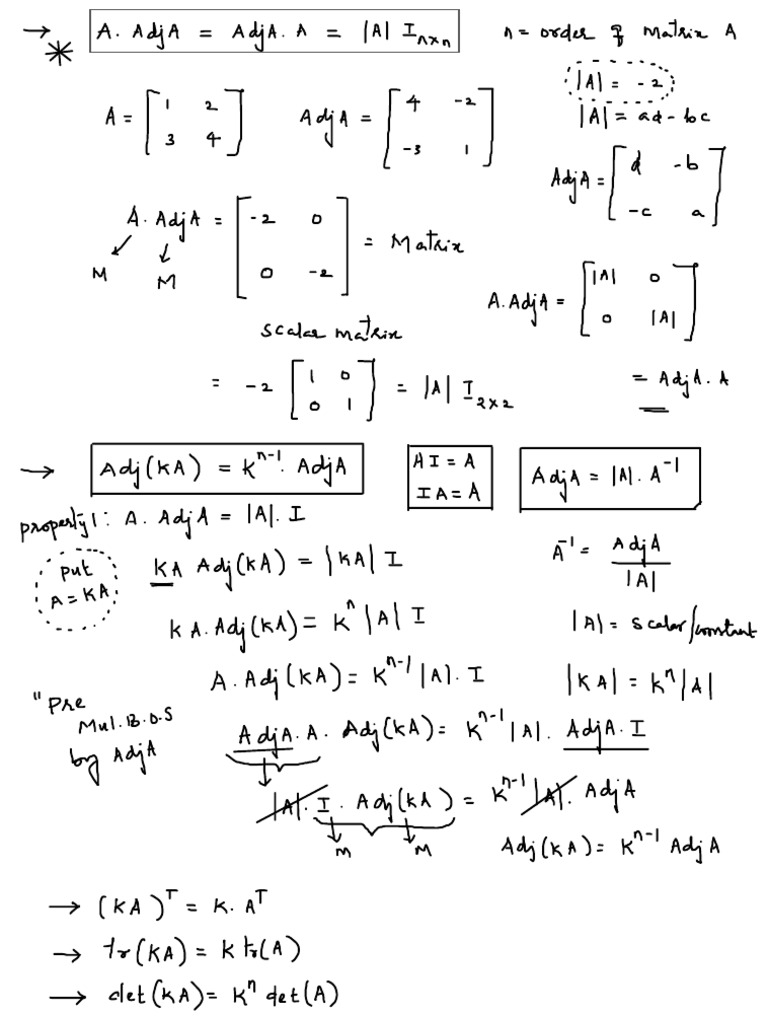 → * A. AdjA = AdjA. A = |A| I_{n×n} n = order of Matrix A
|A| = -2
|A| = ad - bc
A = [1 2; 3 4] AdjA = [4 -2; -3 1]
AdjA = [d -b; -c a]
A. AdjA = [-2 0; 0 -2] = Matrix
M M
A. AdjA = [|A| 0; 0 |A|]
scalar matrix
= -2 [1 0; 0 1] = |A| I_{2×2}
= AdjA. A
→ Adj(KA) = K^{n-1}. AdjA
AI = A
IA = A
AdjA = |A|. A^{-1}
property1: A. AdjA = |A|. I
put
A = KA
KA Adj(KA) = |KA| I
A^{-1} = AdjA / |A|
KA. Adj(KA) = K^n |A| I
|A| = scalar/constant
A. Adj(KA) = K^{n-1} |A|. I
|KA| = K^n |A|
"Pre
Mul. B.O.S
by AdjA
AdjA. A. Adj(KA) = K^{n-1} |A|. AdjA. I
|A|. I. Adj(KA) = K^{n-1} |A|. AdjA
M M
Adj(KA) = K^{n-1} AdjA
→ (KA)^T = K. A^T
→ tr(KA) = K tr(A)
→ det(KA) = K^n det(A)